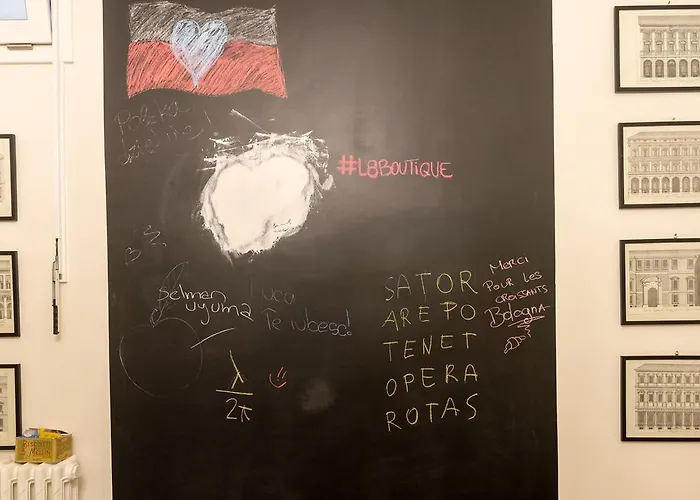 #L8BOUTIQUE
Selman
uyuma
Luca
Te iubesc!
λ
2π
SATOR
AREPO
TENET
OPERA
ROTAS
Merci
POUR LES
CROISSANTS
Bologna
BISCOTTI